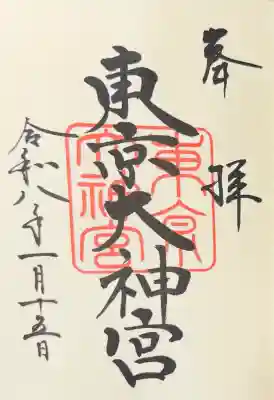 奉拝
東京大神宮
東京大神宮
令和八年一月十五日